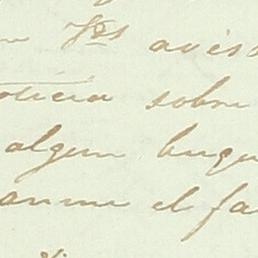 Vds avis
noticia sobre
algun buqu
anme el fa